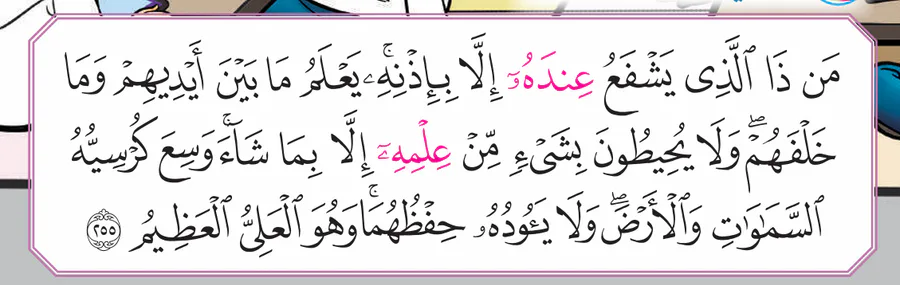 مَن ذَا ٱلَّذِى يَشْفَعُ عِندَهُۥٓ إِلَّا بِإِذْنِهِۦۚ يَعْلَمُ مَا بَيْنَ أَيْدِيهِمْ وَمَا
خَلْفَهُمْۖ وَلَا يُحِيطُونَ بِشَىْءٍ مِّنْ عِلْمِهِۦٓ إِلَّا بِمَا شَآءَۚ وَسِعَ كُرْسِيُّهُ
ٱلسَّمَٰوَٰتِ وَٱلْأَرْضَۖ وَلَا يَـُٔودُهُۥ حِفْظُهُمَاۚ وَهُوَ ٱلْعَلِىُّ ٱلْعَظِيمُ ٢٥٥